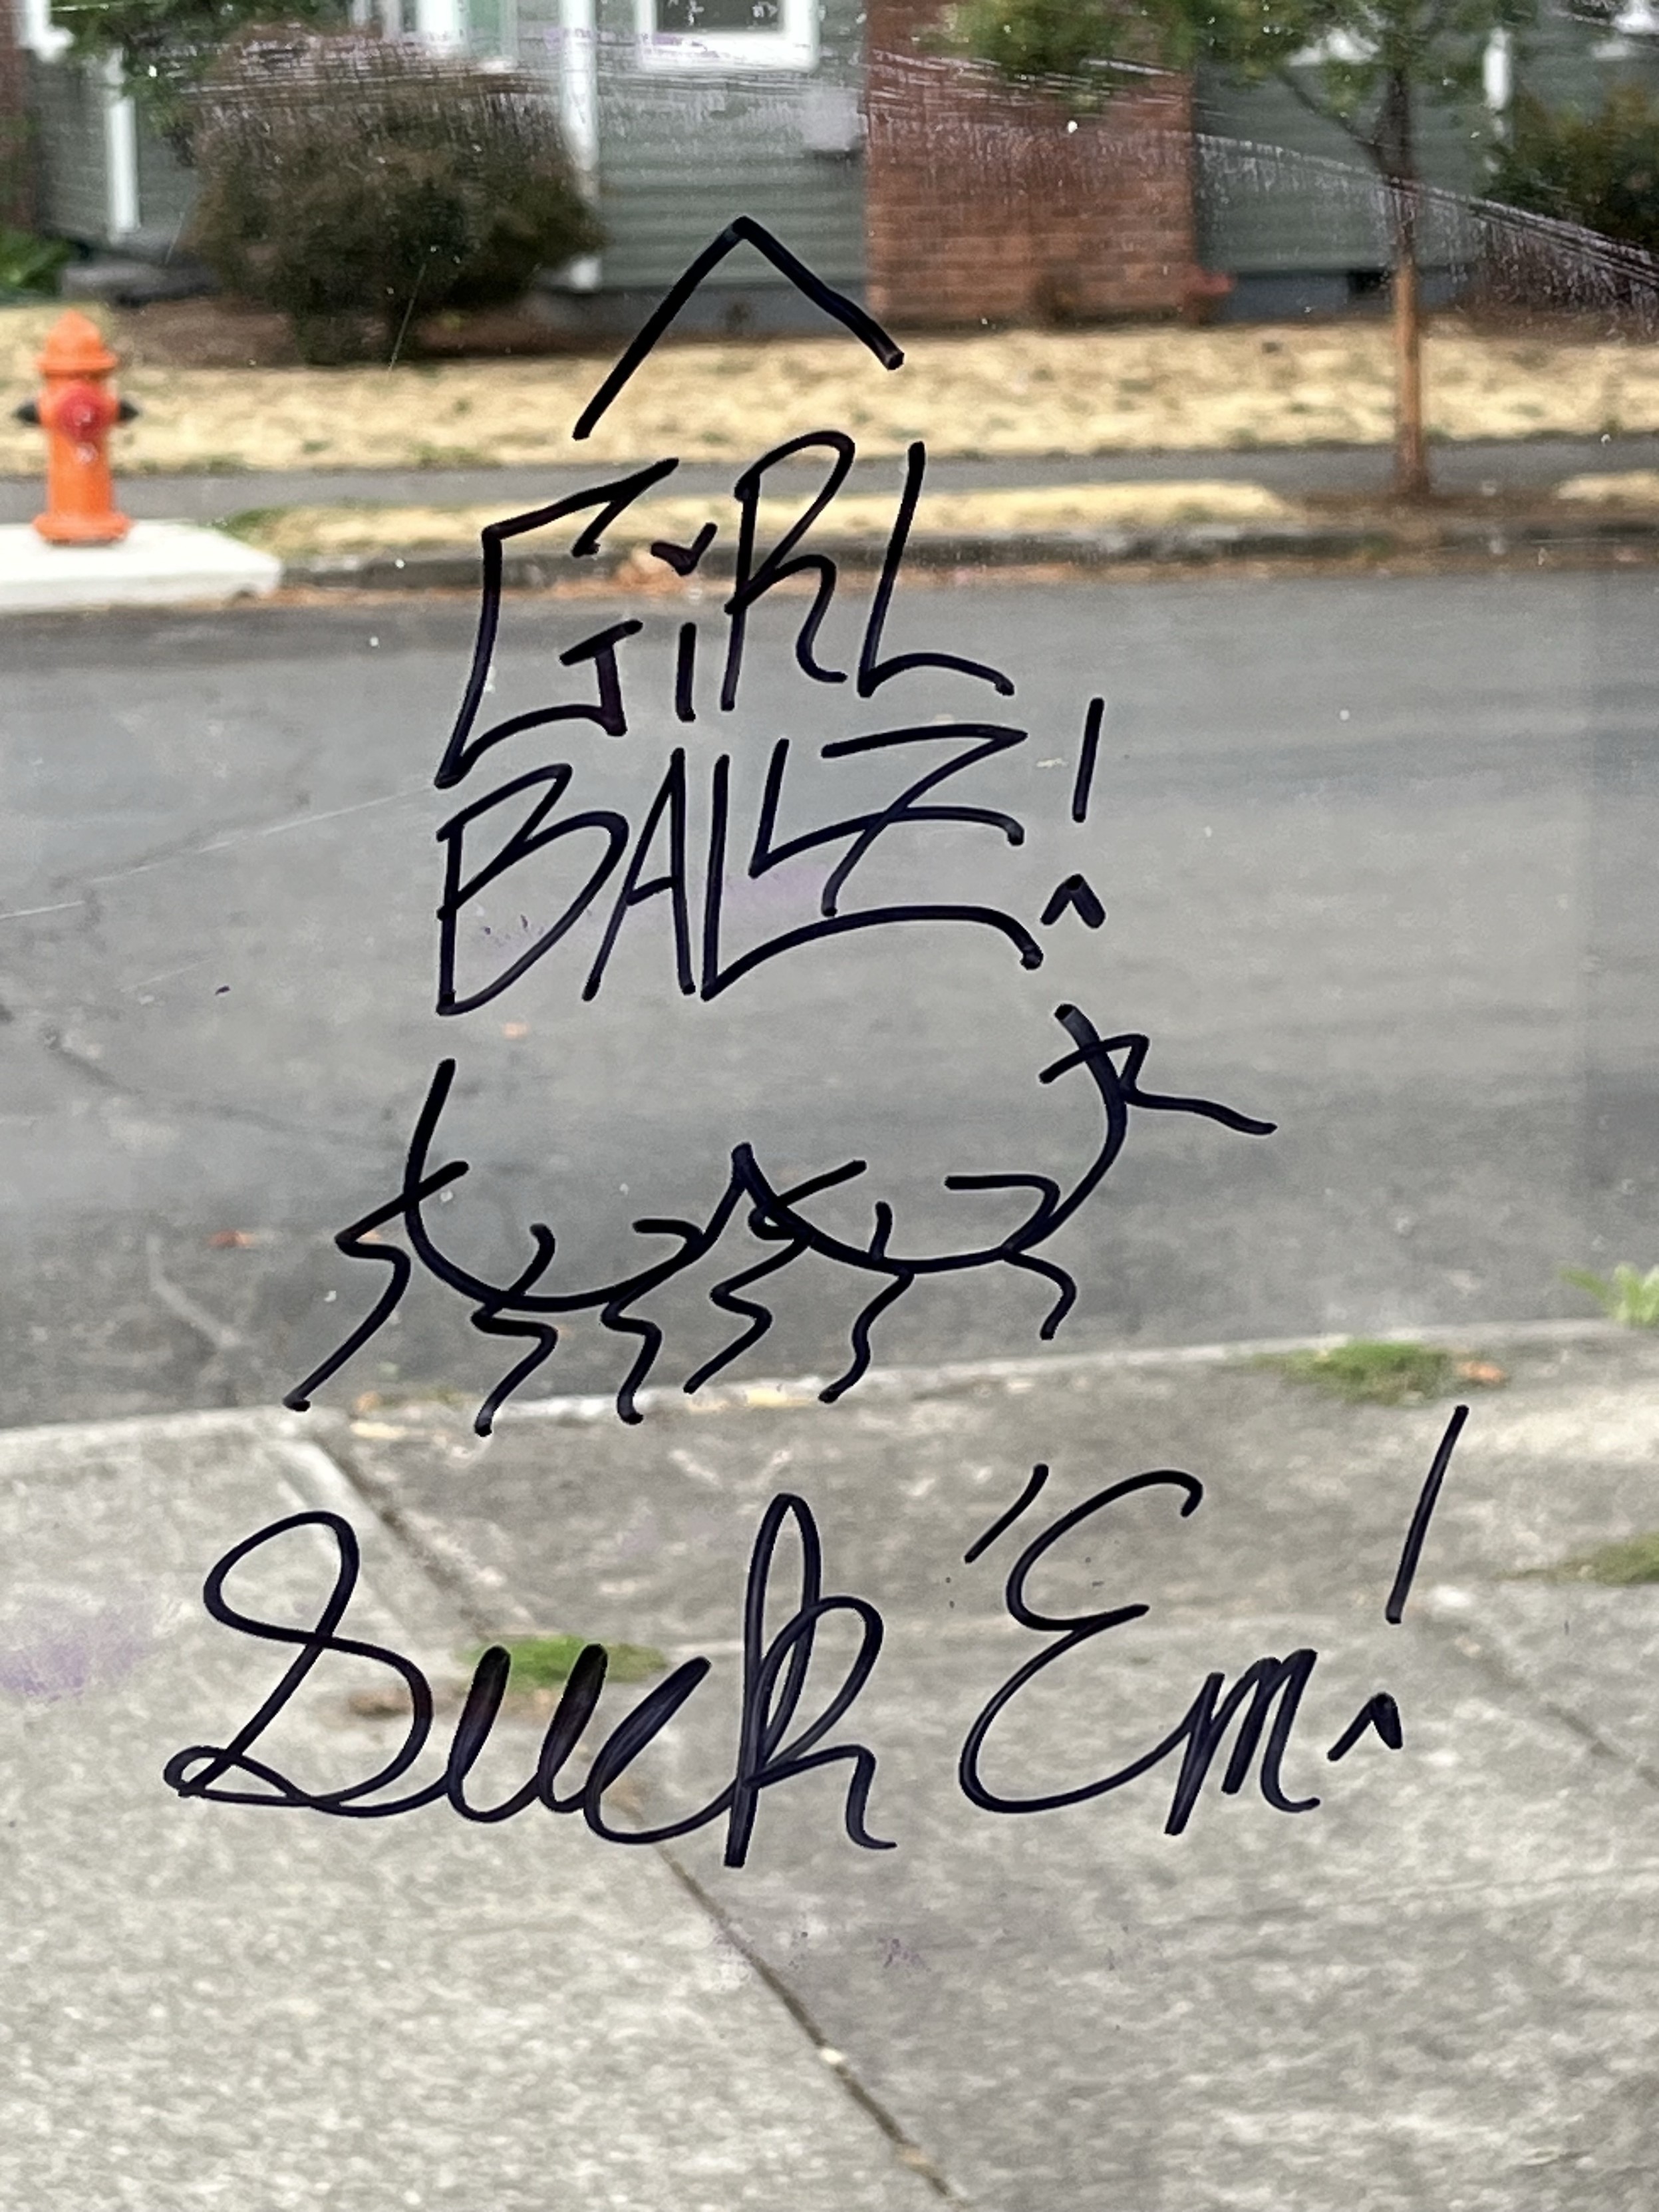 GiRL
BALLZ!
Suck 'Em!